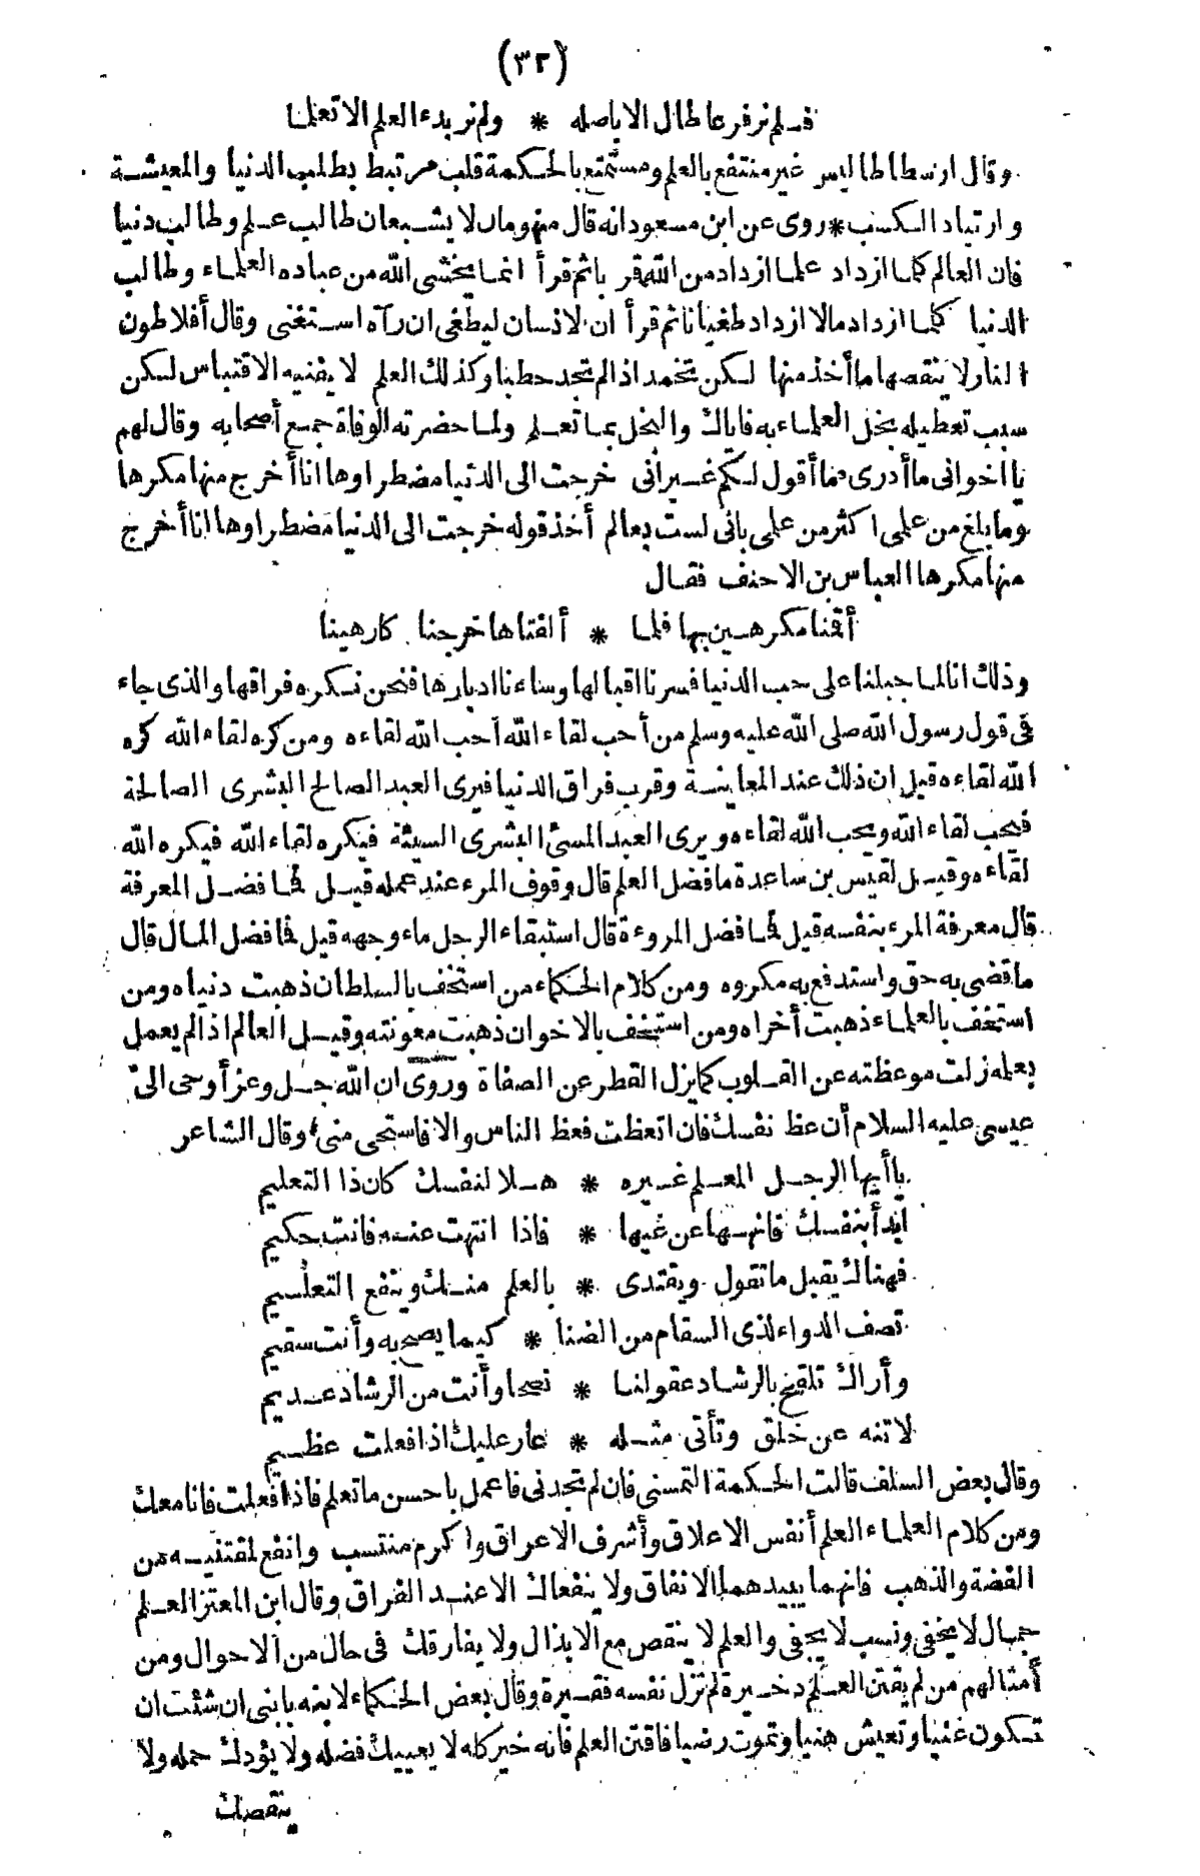 (٣٢)
فلم نر فرعا طال الا باصله * ولم نر بدء العلم الا تعلما
وقال ارسطاطاليس غير منتفع بالعلم ومستمتع بالحكمة قلب مرتبط بطلب الدنيا والمعيشة
وارتياد الكسب * روى عن ابن مسعود انه قال منهومان لا يشبعان طالب علم وطالب دنيا
فان العالم كلما ازداد علما ازداد من الله قربا ثم قرأ انما يخشى الله من عباده العلماء وطالب
الدنيا كلما ازداد مالا ازداد طغيانا ثم قرأ ان الانسان ليطغى ان رآه استغنى وقال أفلاطون
النار لا ينقصها ما أخذ منها لكن تخمد اذا لم تجد حطبا وكذلك العلم لا يفنيه الاقتباس لكن
سبب تعطيله بخل العلماء به فاياك والبخل بما تعلم ولما حضرته الوفاة جمع أصحابه وقال لهم
يا اخوانى ما أدرى فما أقول لكم غير انى خرجت الى الدنيا مضطرا وها انا أخرج منها مكرها
وما بلغ من علمى اكثر من علمى بانى لست بعالم أخذ قوله خرجت الى الدنيا مضطرا وها انا أخرج
منها مكرها العباس بن الاحنف فقال
أقمنا مكرهين بها فلما * ألفناها خرجنا كارهينا
وذلك انا لما جبلنا على حب الدنيا فسرنا اقبالها وساءنا ادبارها فنحن نكره فراقها والذى جاء
فى قول رسول الله صلى الله عليه وسلم من أحب لقاء الله أحب الله لقاءه ومن كره لقاء الله كره
الله لقاءه قيل ان ذلك عند المعاينة وقرب فراق الدنيا فيرى العبد الصالح البشرى الصالحة
فيحب لقاء الله ويحب الله لقاءه ويرى العبد المسئ البشرى السيئة فيكره لقاء الله فيكره الله
لقاءه وقيل لقيس بن ساعدة ما فضل العلم قال وقوف المرء عند عمله قيل فما فضل المعرفة
قال معرفة المرء بنفسه قيل فما فضل المروءة قال استبقاء الرجل ماء وجهه قيل فما فضل المال قال
ما قضى به حق واستدفع به مكروه ومن كلام الحكماء من استخف بالسلطان ذهبت دنياه ومن
استخف بالعلماء ذهبت أخراه ومن استخف بالاخوان ذهبت معونته وقيل العالم اذا لم يعمل
بعلمه زلت موعظته عن القلوب كما يزل القطر عن الصفاة وروى ان الله جل وعز أوحى الى
عيسى عليه السلام أن عظ نفسك فان اتعظت فعظ الناس والا فاستحى منى وقال الشاعر
يا أيها الرجل المعلم غيره * هلا لنفسك كان ذا التعليم
ابدأ بنفسك فانهها عن غيها * فاذا انتهت عنه فانت حكيم
فهناك يقبل ما تقول ويقتدى * بالعلم منك وينفع التعليم
تصف الدواء لذى السقام من الضنا * كيما يصح به وأنت سقيم
وأراك تلقح بالرشاد عقولنا * نصحا وأنت من الرشاد عديم
لا تنه عن خلق وتأتى مثله * عار عليك اذا فعلت عظيم
وقال بعض السلف قالت الحكمة التمسنى فان لم تجدنى فاعمل باحسن ما تعلم فاذا فعلت فانا معك
ومن كلام العلماء العلم أنفس الاعلاق وأشرف الاعراق واكرم منتسب وانفع لمقتنيه من
الفضة والذهب فانهما يبيدهما الانفاق ولا ينفعاك الا عند الفراق وقال ابن المعتز العلم
جمال لا يخفى ونسب لا يجفى والعلم لا ينقص مع الابذال ولا يفارقك فى حال من الاحوال ومن
أمثالهم من لم يقتن العلم ذخيرة لم تزل نفسه فقيرة وقال بعض الحكماء لابنه يا بنى ان شئت ان
تكون غنيا وتعيش هنيا وتموت رضيا فاقتن العلم فانه خير كله لا يعييك فضله ولا يؤدك حمله ولا
ينقصك